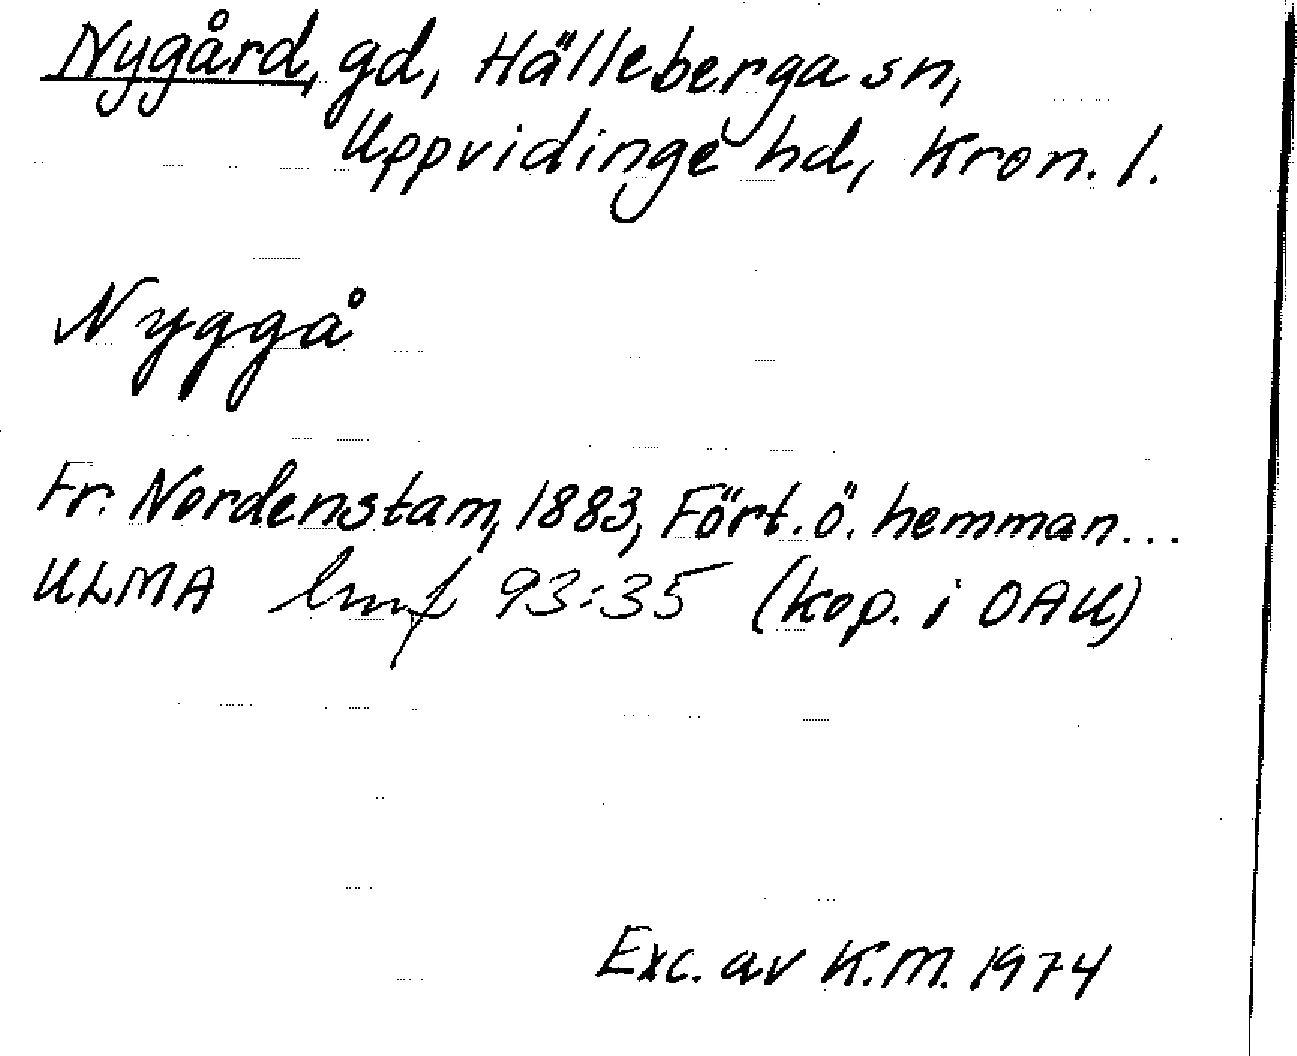 Nygård, gd, Hälleberga sn,
Uppvidinge hd, Kron. l.
Nyggå
Fr. Nordenstam, 1883, Fört. ö. hemman...
ULMA 93:35 (kop. i OAU)
Exc. av K.M. 1974